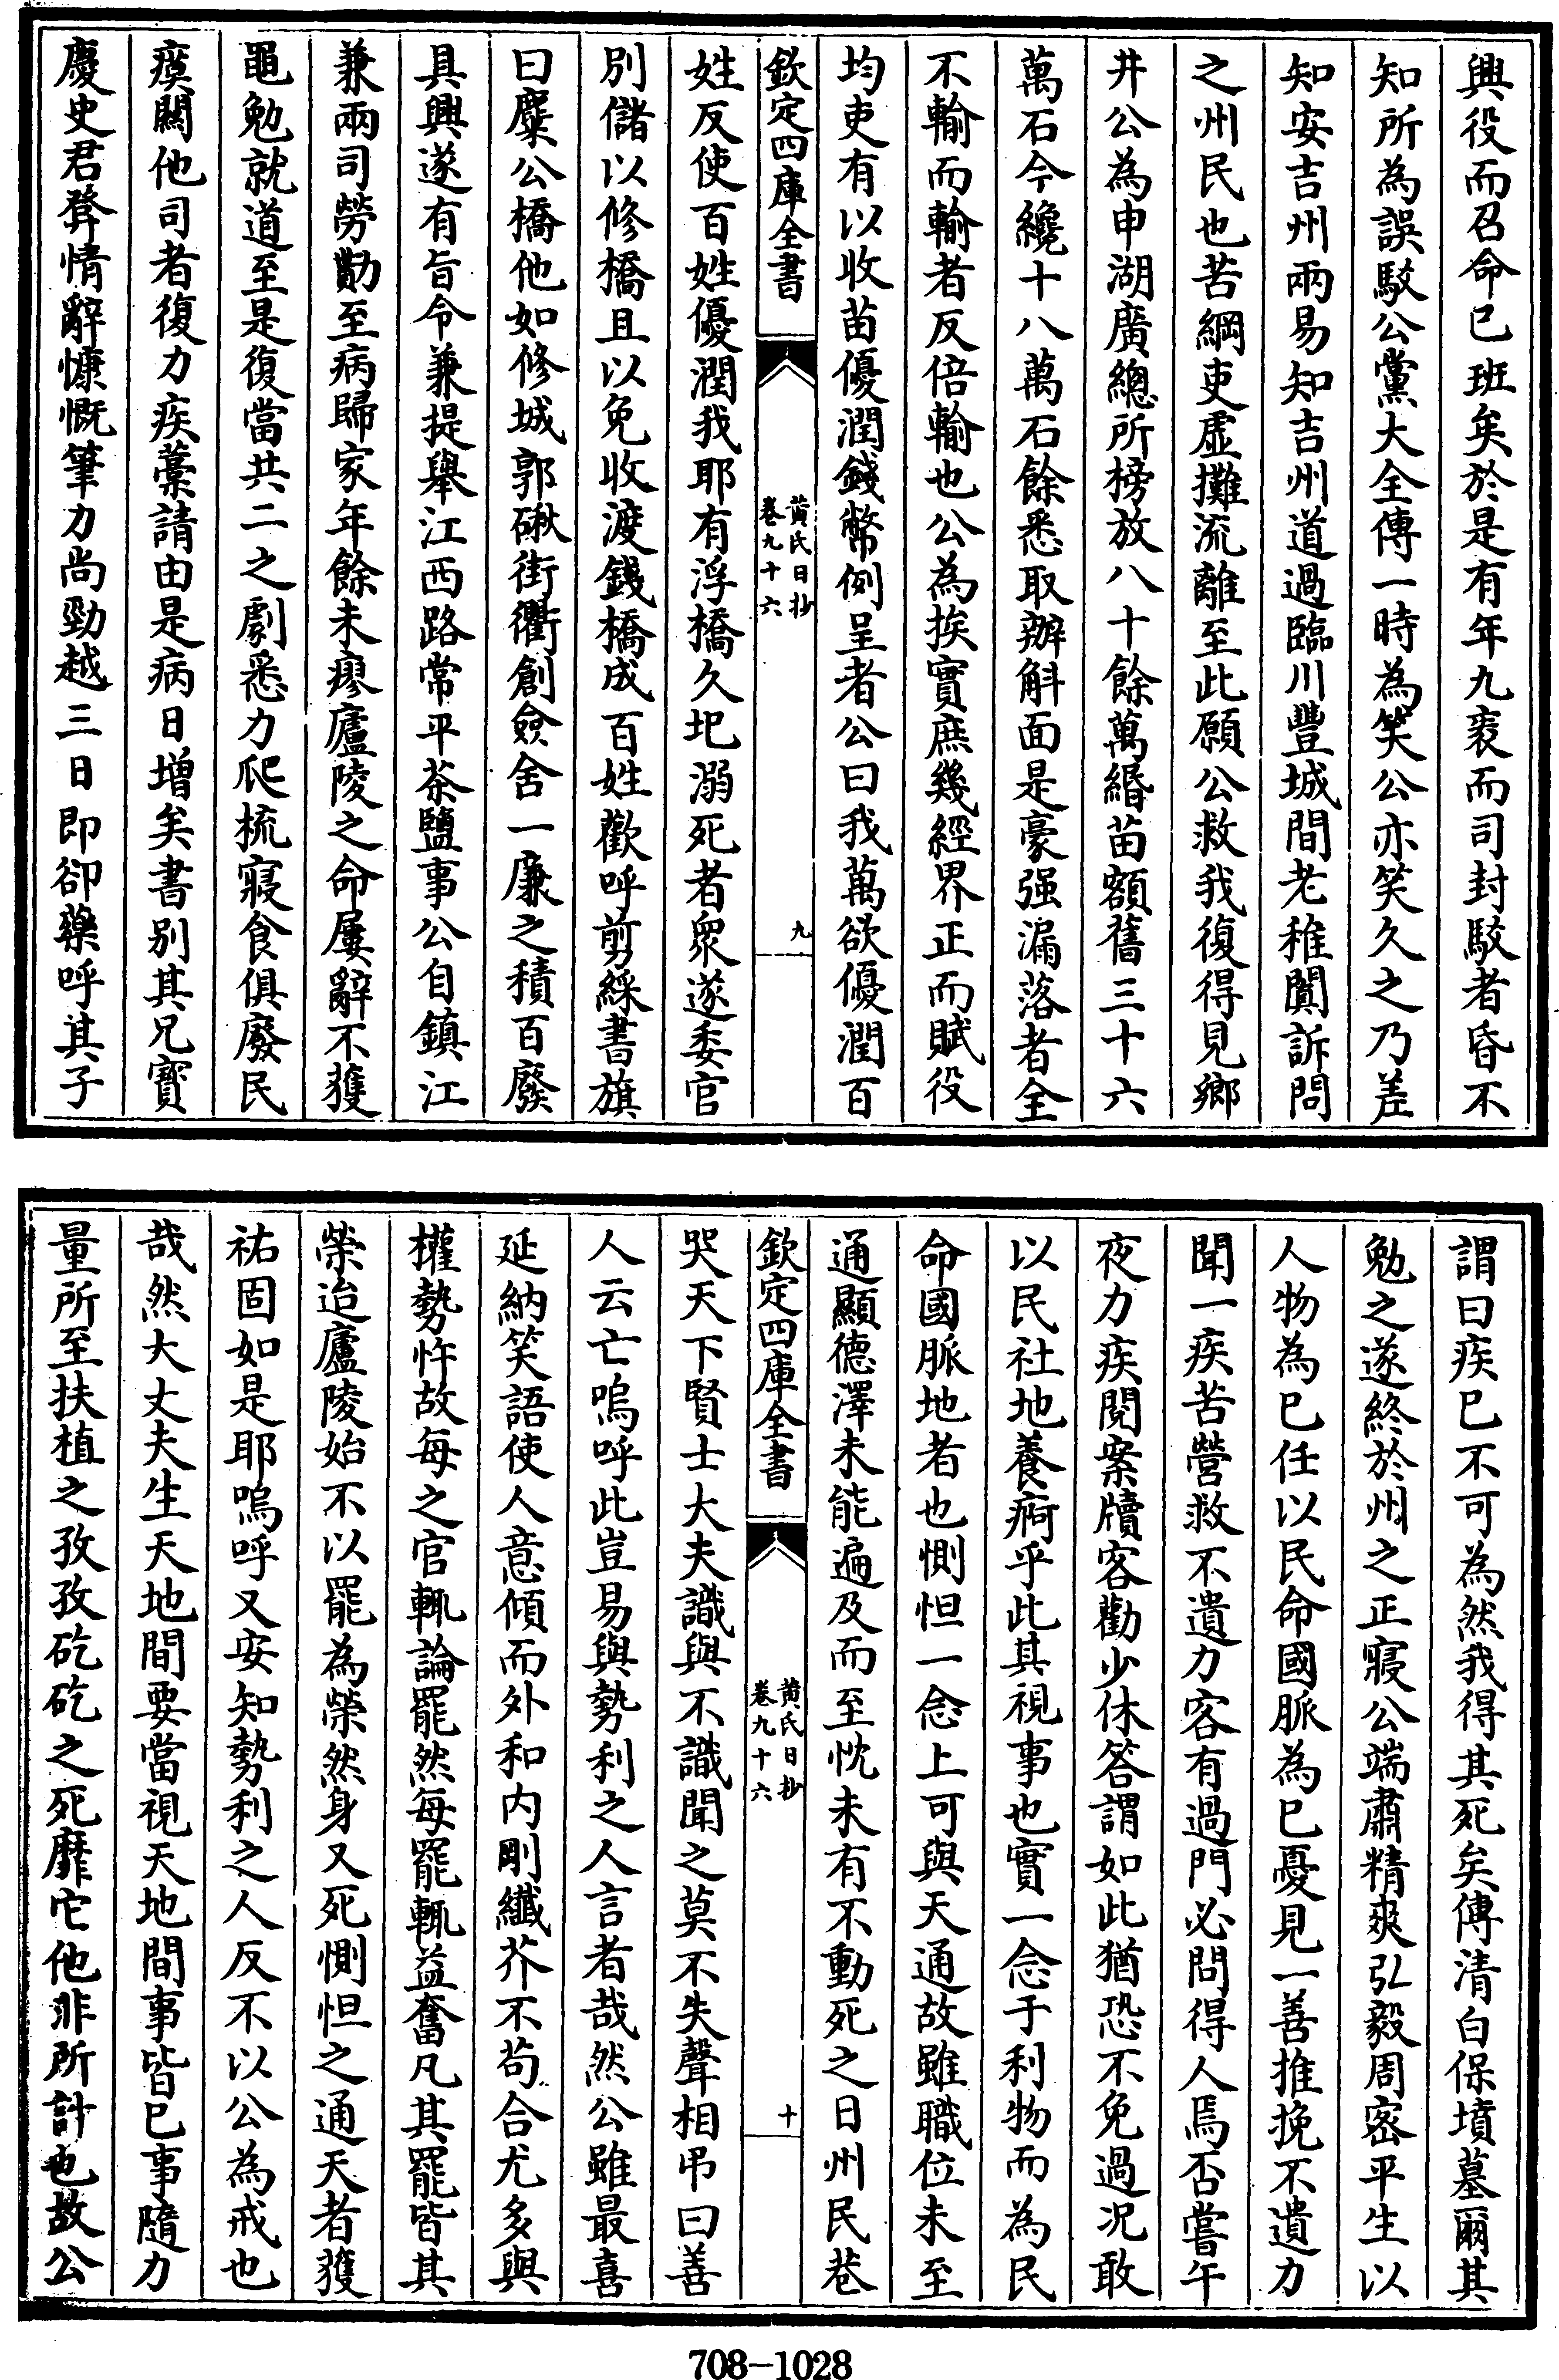 興役而召命已班矣於是有年九袠而司封駮者昏不
知所為誤駮公黨大全傳一時為笑公亦笑久之乃差
知安吉州兩易知吉州道過臨川豐城間老稚闐訴問
之州民也苦綱吏虛攤流離至此願公救我復得見鄉
井公為申湖廣總所榜放八十餘萬緡苗額舊三十六
萬石今纔十八萬石餘悉取辦斛面是豪强漏落者全
不輸而輸者反倍輸也公為挨實庶幾經界正而賦役
均吏有以收苗優潤錢幣例呈者公曰我萬欲優潤百
欽定四庫全書
黄氏日抄
卷九十六
九
姓反使百姓優潤我耶有浮橋久圯溺死者衆遂委官
別儲以修橋且以免收渡錢橋成百姓歡呼剪綵書旗
曰麋公橋他如修城郭砌街衢創僉舍一廉之積百廢
具興遂有旨令兼提舉江西路常平茶鹽事公自鎮江
兼兩司勞勩至病歸家年餘未瘳廬陵之命屢辭不獲
黽勉就道至是復當共二之劇悉力爬梳寢食俱廢民
瘼闗他司者復力疾藁請由是病日增矣書别其兄寳
慶史君弉情辭慷慨筆力尚勁越三日即卻藥呼其子
謂曰疾已不可為然我得其死矣傳清白保墳墓爾其
勉之遂終於州之正寢公端肅精爽弘毅周密平生以
人物為己任以民命國脈為已憂見一善推挽不遺力
聞一疾苦營救不遺力客有過門必問得人焉否嘗午
夜力疾閱案牘客勸少休答謂如此猶恐不免過况敢
以民社地養疴乎此其視事也實一念于利物而為民
命國脈地者也惻怛一念上可與天通故雖職位未至
通顯德澤未能遍及而至忱未有不動死之日州民巷
欽定四庫全書
黄氏日抄
卷九十六
十
哭天下賢士大夫識與不識聞之莫不失聲相吊曰善
人云亡嗚呼此豈易與勢利之人言者哉然公雖最喜
延納笑語使人意傾而外和内剛纎芥不茍合尤多與
權勢忤故每之官輒論罷然每罷輒益奮凡其罷皆其
榮迨廬陵始不以罷為榮然身又死惻怛之通天者獲
祐固如是耶嗚呼又安知勢利之人反不以公為戒也
哉然大丈夫生天地間要當視天地間事皆已事隨力
量所至扶植之孜孜矻矻之死靡它他非所計也故公
708-1028